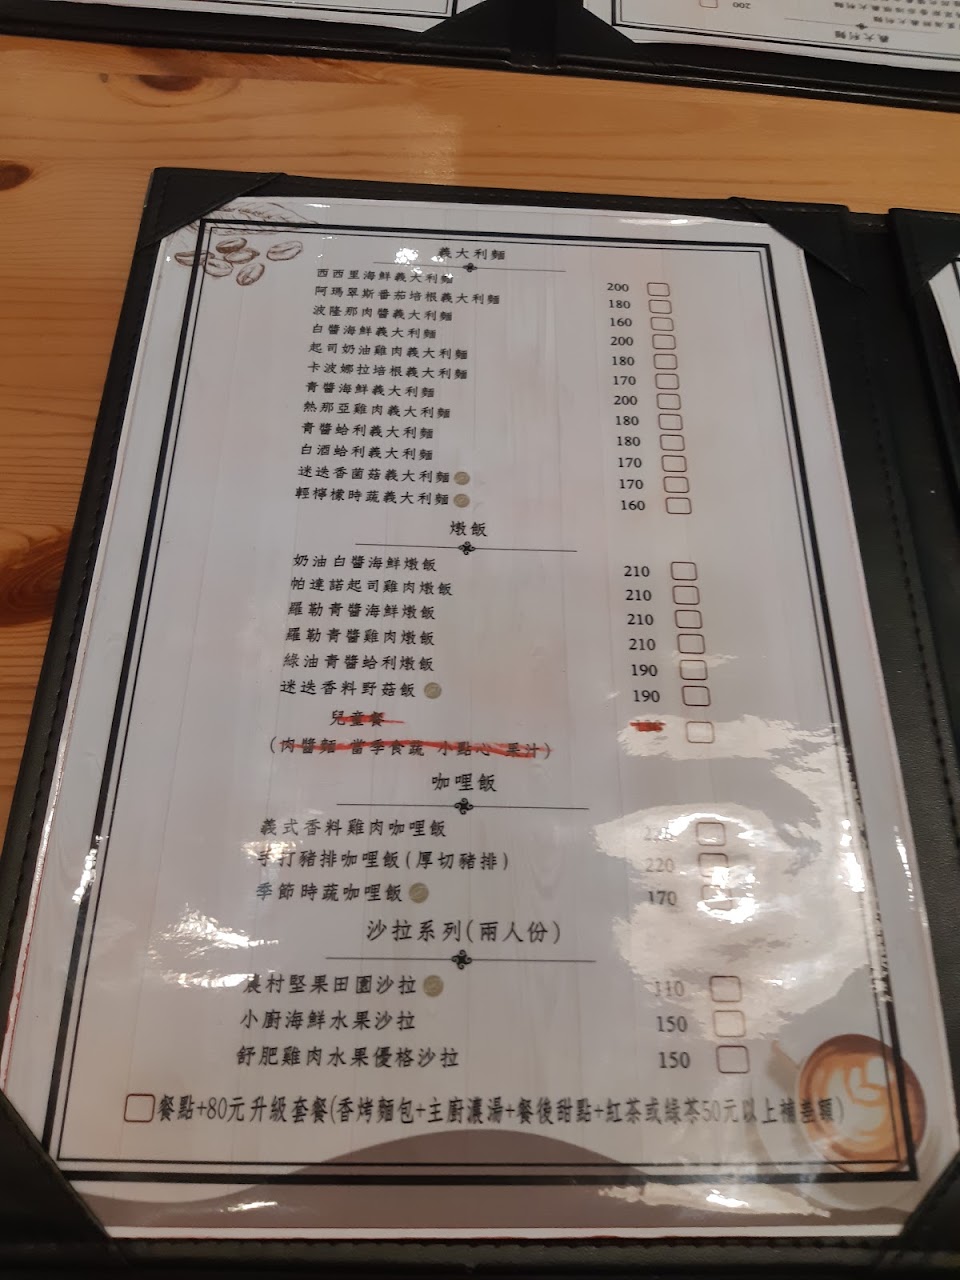 200
義大利麵
義大利麵
西西里海鮮義大利麵 200
阿瑪翠斯番茄培根義大利麵 180
波隆那肉醬義大利麵 160
白醬海鮮義大利麵 200
起司奶油雞肉義大利麵 180
卡波娜拉培根義大利麵 170
青醬海鮮義大利麵 200
熱那亞雞肉義大利麵 180
青醬蛤利義大利麵 180
白酒蛤利義大利麵 170
迷迭香菌菇義大利麵 170
輕檸檬時蔬義大利麵 160
燉飯
奶油白醬海鮮燉飯 210
帕達諾起司雞肉燉飯 210
羅勒青醬海鮮燉飯 210
羅勒青醬雞肉燉飯 210
綠油青醬蛤利燉飯 190
迷迭香料野菇飯 190
兒童餐
(肉醬麵 當季食蔬 小點心 果汁)
咖哩飯
義式香料雞肉咖哩飯
手打豬排咖哩飯(厚切豬排) 220
季節時蔬咖哩飯 170
沙拉系列(兩人份)
農村堅果田園沙拉 110
小廚海鮮水果沙拉 150
舒肥雞肉水果優格沙拉 150
餐點+80元升級套餐(香烤麵包+主廚濃湯+餐後甜點+紅茶或綠茶50元以上補差額)